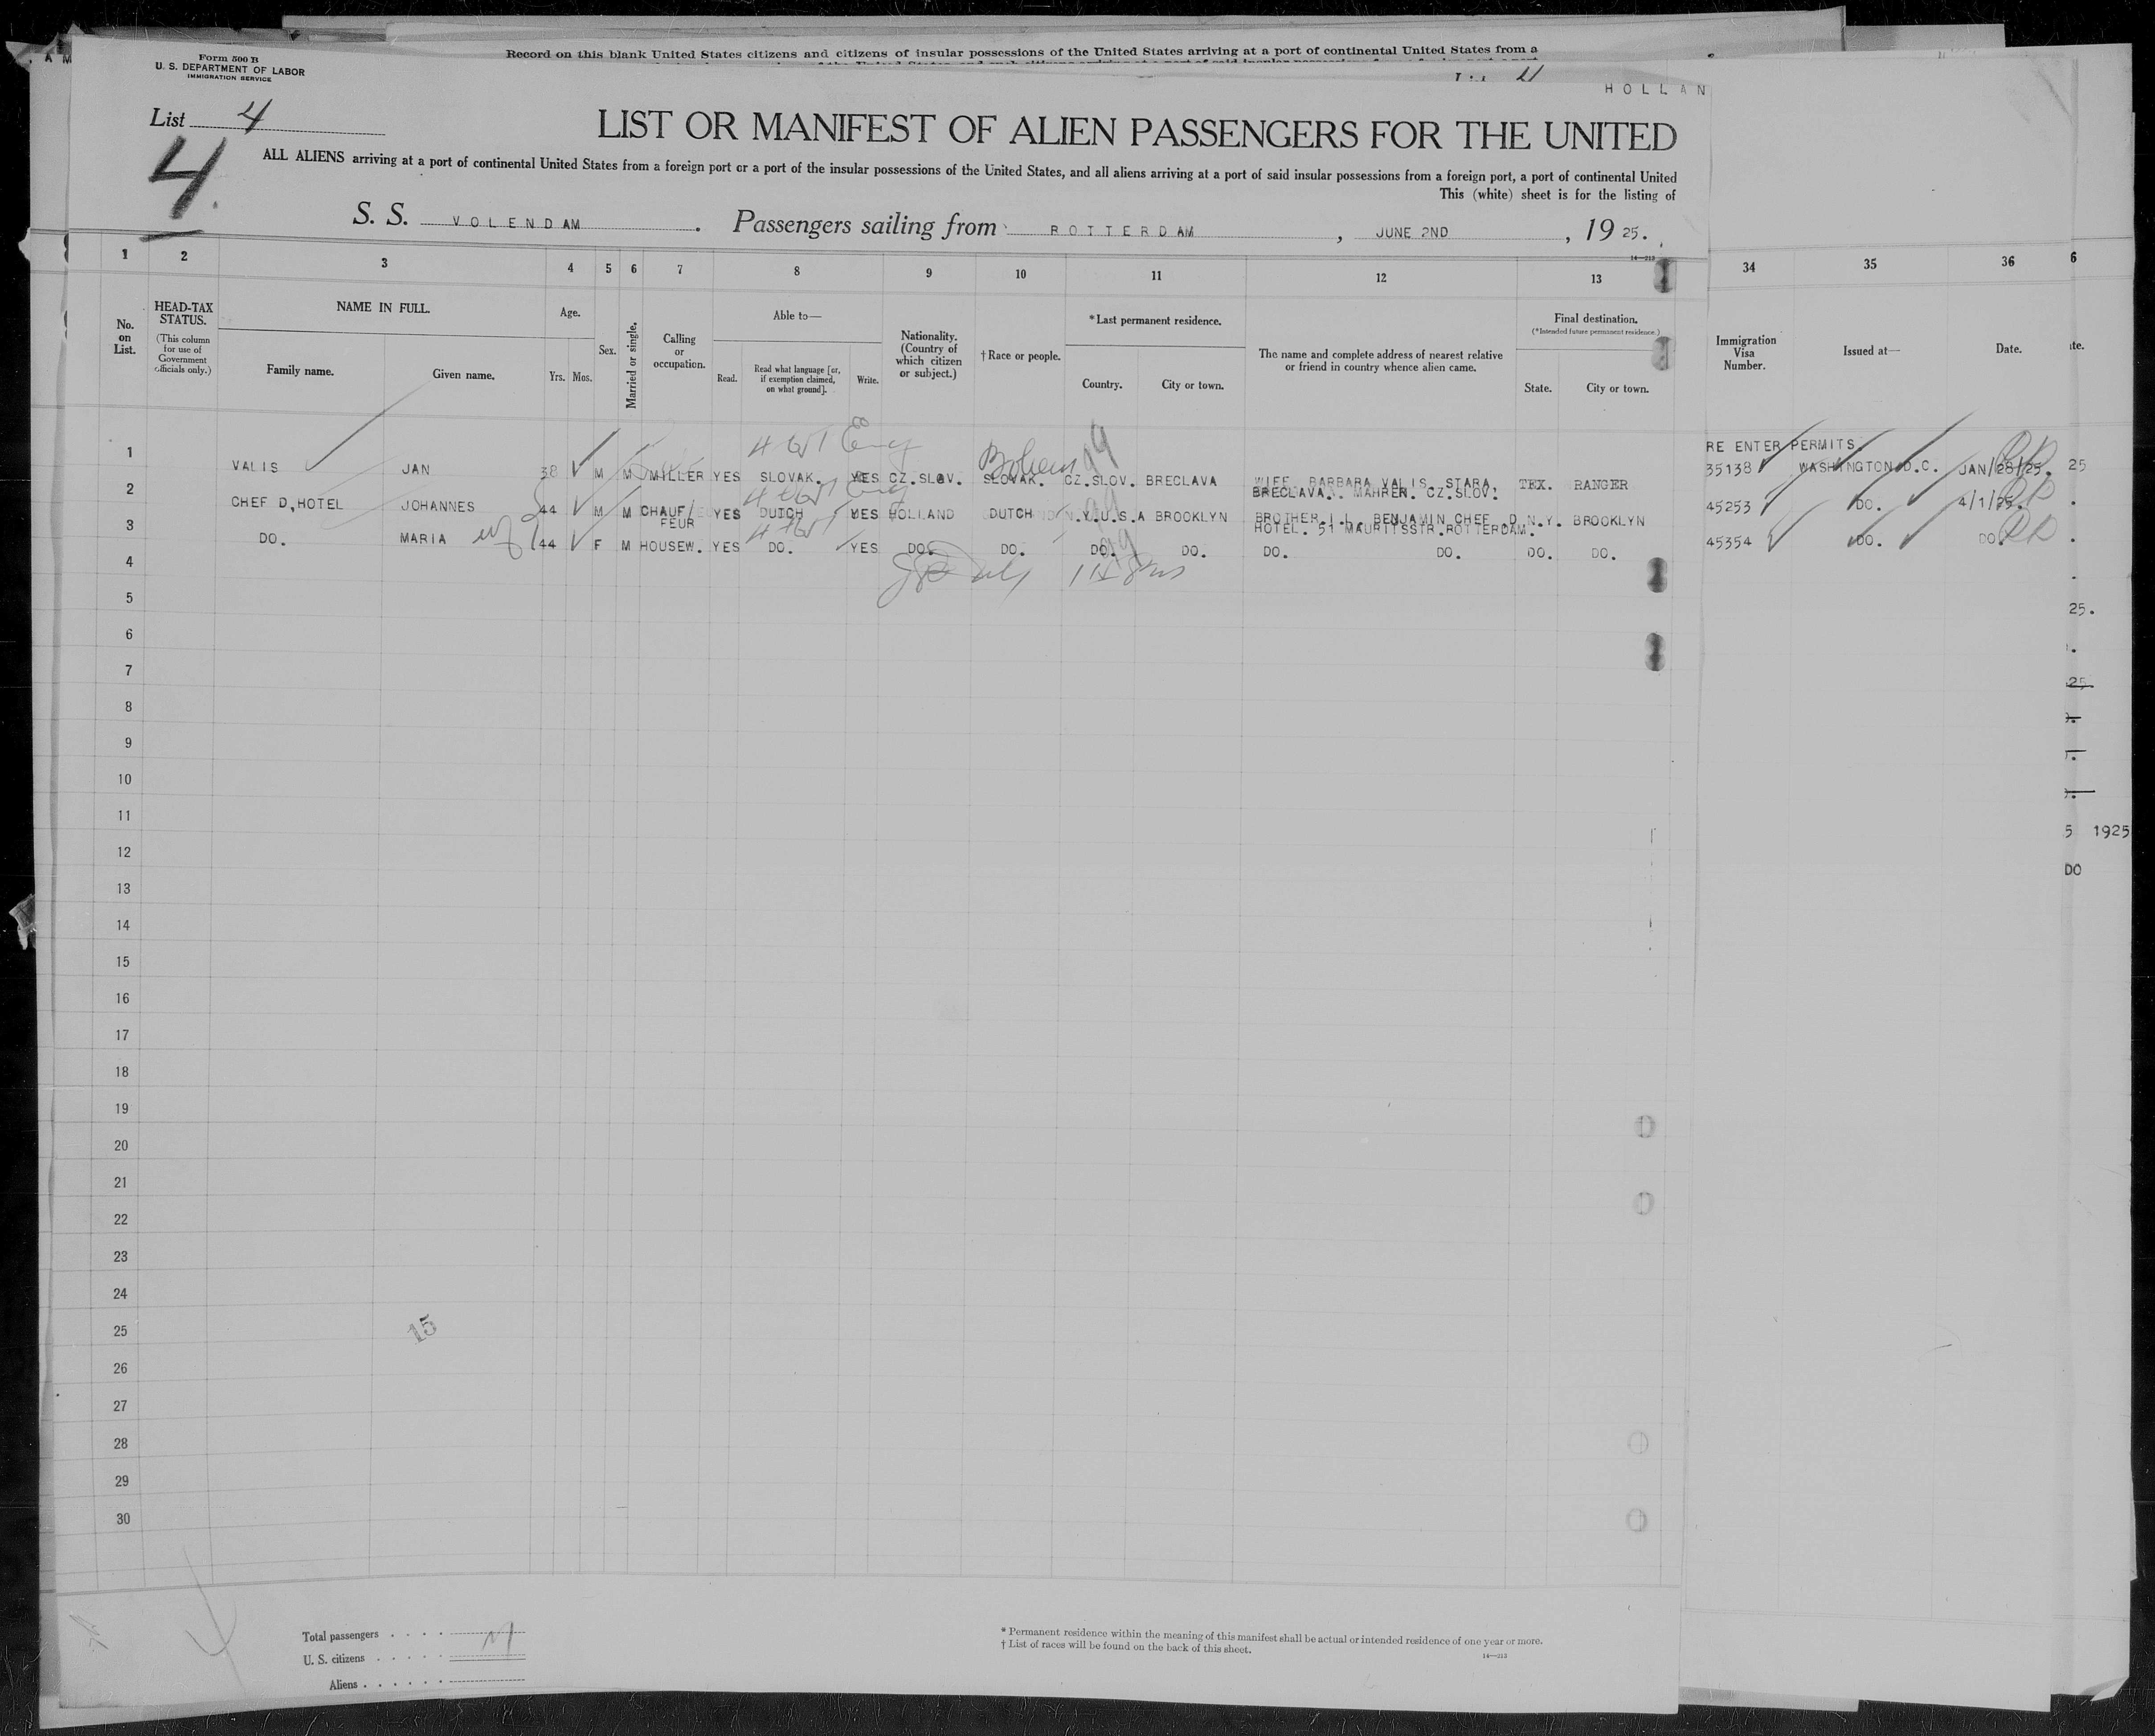 Record on this blank United States citizens and citizens of insular possessions of the United States arriving at a port of continental United States from a
Form 500 B
U. S. DEPARTMENT OF LABOR
IMMIGRATION SERVICE
HOLLAN
List 4
4.
LIST OR MANIFEST OF ALIEN PASSENGERS FOR THE UNITED
ALL ALIENS arriving at a port of continental United States from a foreign port or a port of the insular possessions of the United States, and all aliens arriving at a port of said insular possessions from a foreign port, a port of continental United
This (white) sheet is for the listing of
S. S. VOLENDAM. Passengers sailing from ROTTERDAM, JUNE 2ND, 1925.
1 2 3 4 5 6 7 8 9 10 11 12 13 34 35 36 6
No. on List.
HEAD-TAX STATUS.
(This column for use of Government officials only.)
NAME IN FULL.
Family name. Given name.
Age.
Yrs. Mos.
Sex.
Married or single.
Calling or occupation.
Able to—
Read. Read what language [or, if exemption claimed, on what ground]. Write.
Nationality. (Country of which citizen or subject.)
†Race or people.
*Last permanent residence.
Country. City or town.
The name and complete address of nearest relative or friend in country whence alien came.
Final destination.
(*Intended future permanent residence.)
State. City or town.
Immigration Visa Number.
Issued at—
Date.
te.
RE ENTER PERMITS
1 VALIS JAN 38 M M MILLER YES SLOVAK. YES CZ.SLOV. SLOVAK. Bohem CZ.SLOV. BRECLAVA WIFE BARBARA VALIS. STARA. BRECLAVA. MAHREN. CZ.SLOV. TEX. RANGER 35138 WASHINGTON D.C. JAN/28/25. 25
2 CHEF D,HOTEL JOHANNES 44 M M CHAUF/FEUR YES DUTCH YES HOLLAND DUTCH N.Y.U.S.A BROOKLYN BROTHER.I.L. BENJAMIN CHEF D HOTEL. 51 MAURITSSTR.ROTTERDAM. N.Y. BROOKLYN 45253 DO. 4/1/25.
3 DO. MARIA wf 44 F M HOUSEW. YES DO. YES DO. DO. DO. DO. DO. DO. DO. DO. 45354 DO. DO.
4
5 25.
6
7
8
9
10
11
5 1925
12
DO
13
14
15
16
17
18
19
20
21
22
23
24
25
15
26
27
28
29
30
Total passengers . . . .
U. S. citizens . . . . .
Aliens . . . . . .
* Permanent residence within the meaning of this manifest shall be actual or intended residence of one year or more.
† List of races will be found on the back of this sheet.
14—213